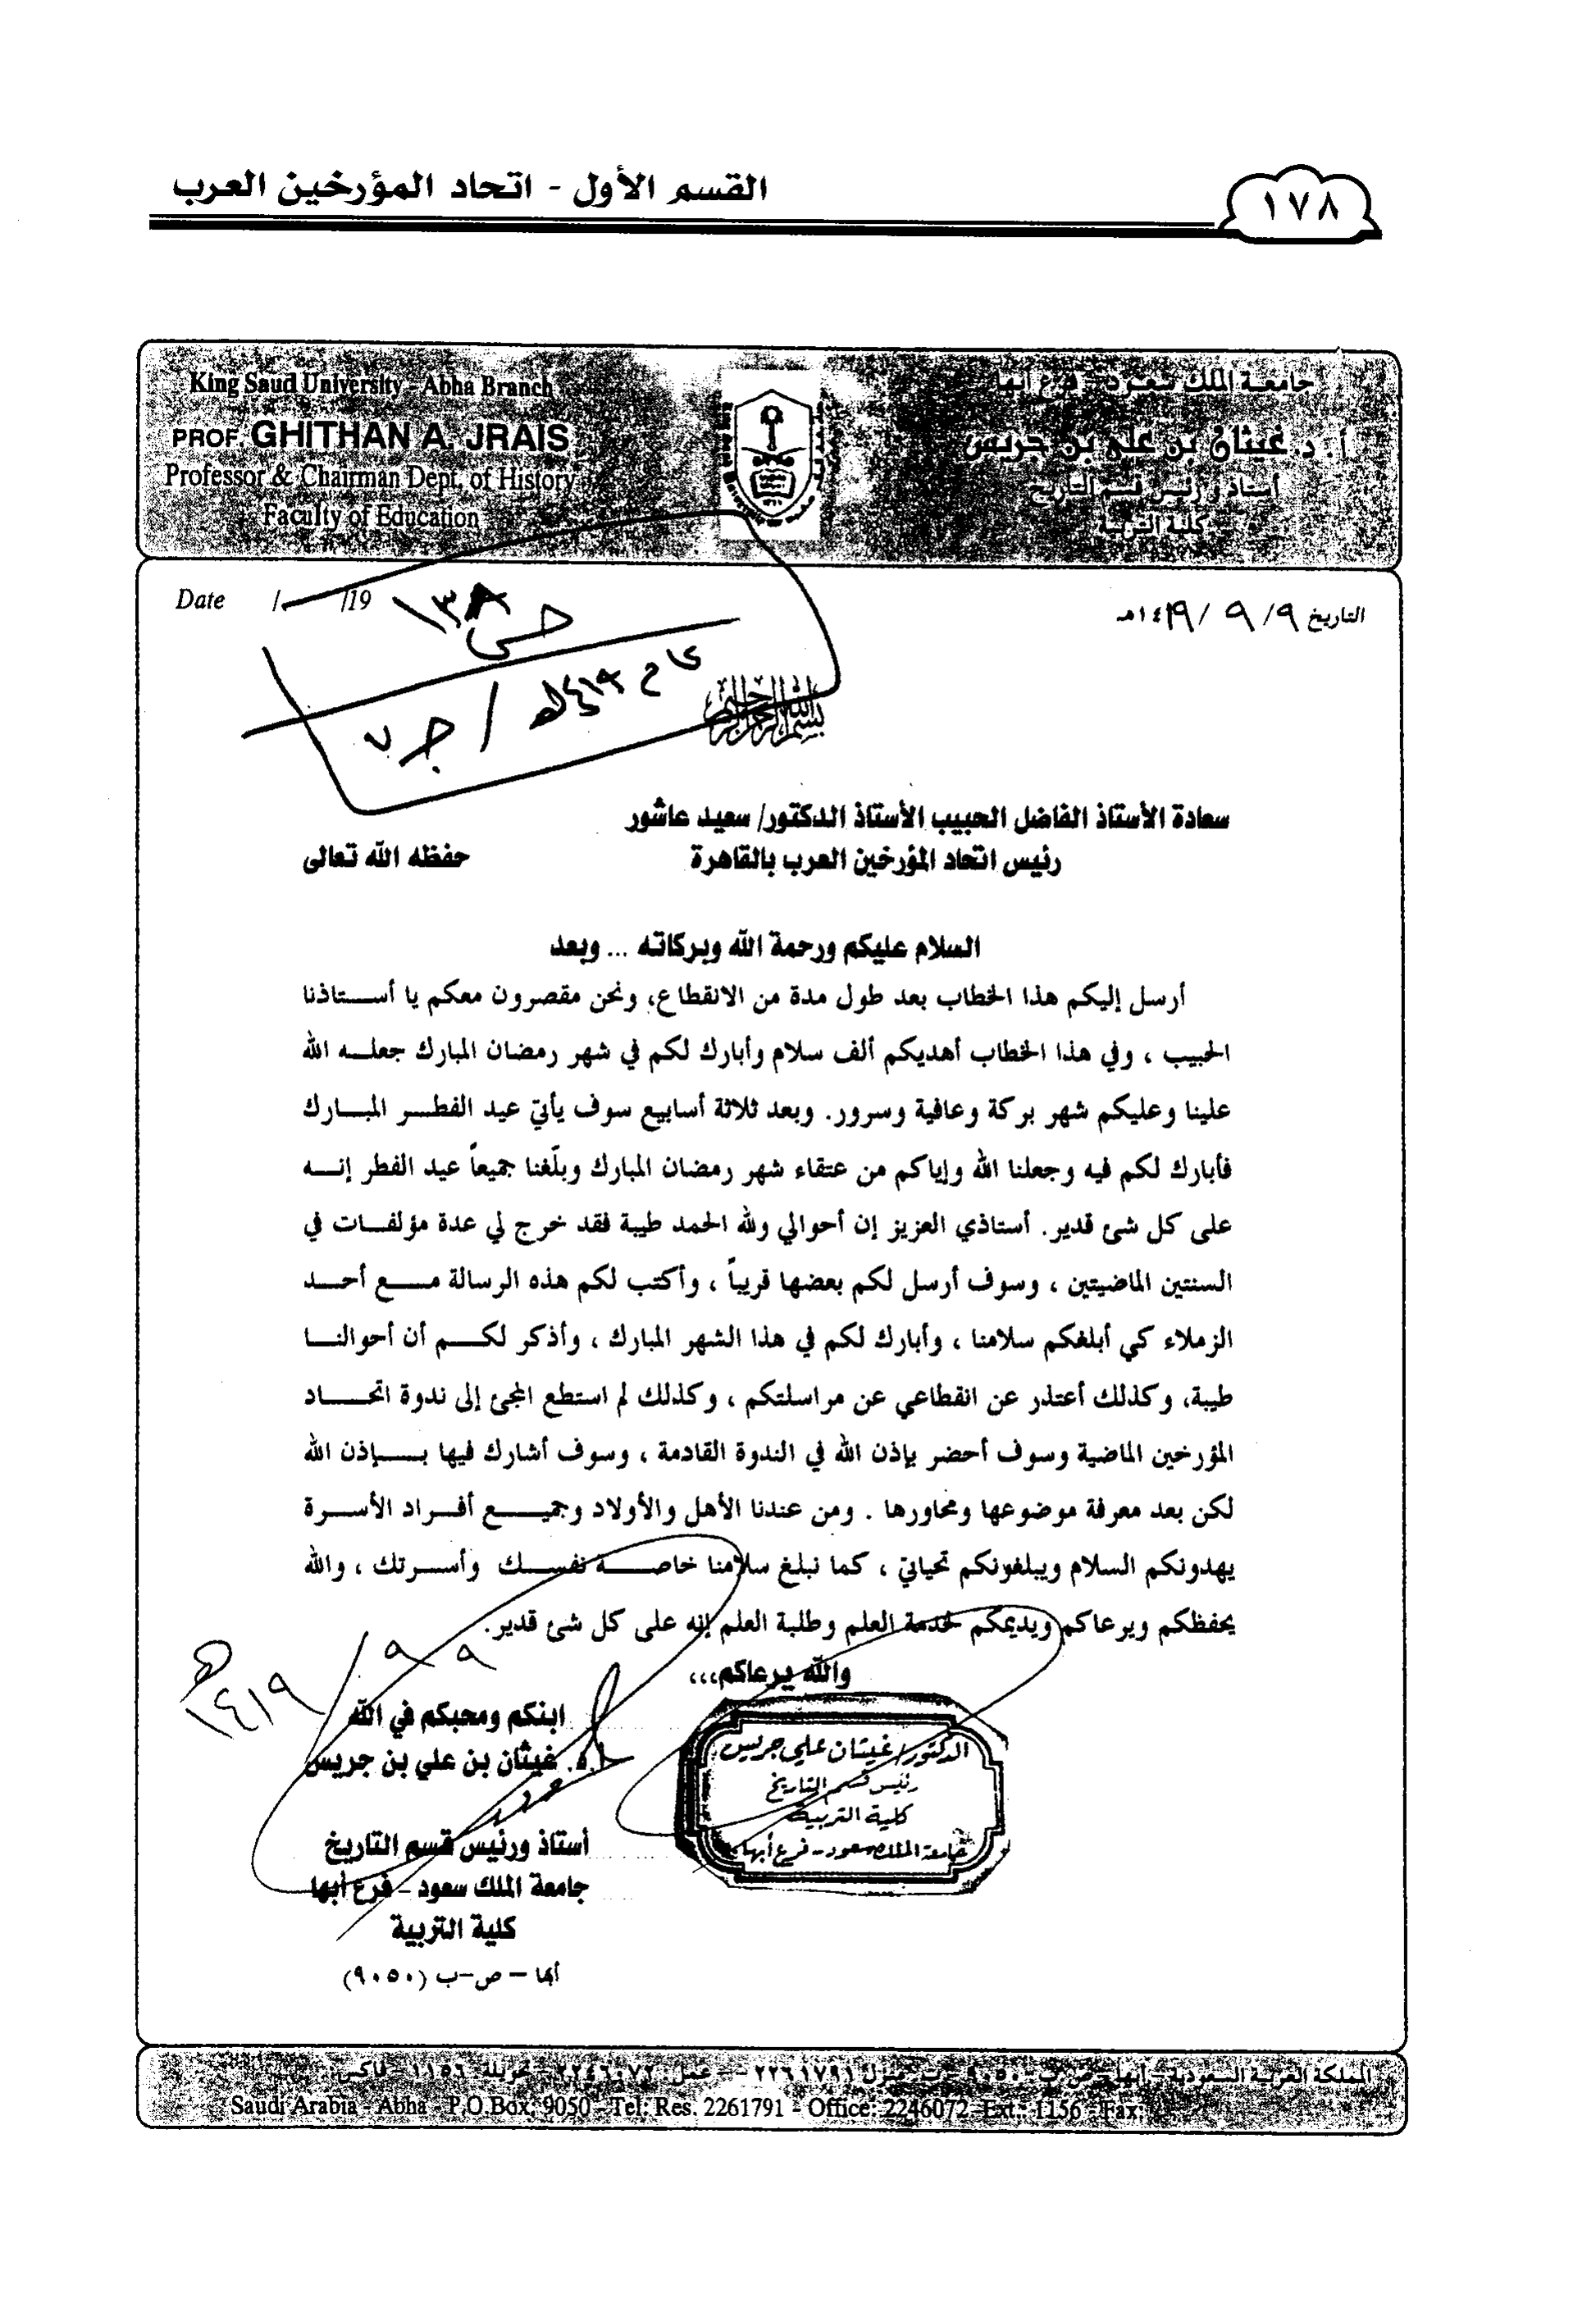 القسم الأول - اتحاد المؤرخين العرب
١٧٨
King Saud University - Abha Branch
PROF. GHITHAN A. JRAIS
Professor & Chairman Dept. of History
Faculty of Education
جامعة الملك سعود - فرع أبها
أ. د. غيثان بن علي بن جريس
أستاذ و رئيس قسم التاريخ
كلية التربية
Date / /19
التاريخ ٩/ ٩ /١٤١٩هـ
١٣٨
١٤١٩هـ / جـ ٧
بسم الله الرحمن الرحيم
سعادة الأستاذ الفاضل الحبيب الأستاذ الدكتور/ سعيد عاشور
رئيس اتحاد المؤرخين العرب بالقاهرة حفظه الله تعالى
السلام عليكم ورحمة الله وبركاته ... وبعد
أرسل إليكم هذا الخطاب بعد طول مدة من الانقطاع، ونحن مقصرون معكم يا أستاذنا
الحبيب ، وفي هذا الخطاب أهديكم ألف سلام وأبارك لكم في شهر رمضان المبارك جعله الله
علينا وعليكم شهر بركة وعافية وسرور. وبعد ثلاثة أسابيع سوف يأتي عيد الفطر المبارك
فأبارك لكم فيه وجعلنا الله وإياكم من عتقاء شهر رمضان المبارك وبلّغنا جميعاً عيد الفطر إنه
على كل شئ قدير. أستاذي العزيز إن أحوالي ولله الحمد طيبة فقد خرج لي عدة مؤلفات في
السنتين الماضيتين ، وسوف أرسل لكم بعضها قريباً ، وأكتب لكم هذه الرسالة مع أحد
الزملاء كي أبلغكم سلامنا ، وأبارك لكم في هذا الشهر المبارك ، وأذكر لكم أن أحوالنا
طيبة، وكذلك أعتذر عن انقطاعي عن مراسلتكم ، وكذلك لم استطع المجئ إلى ندوة اتحاد
المؤرخين الماضية وسوف أحضر بإذن الله في الندوة القادمة ، وسوف أشارك فيها بإذن الله
لكن بعد معرفة موضوعها ومحاورها . ومن عندنا الأهل والأولاد وجميع أفراد الأسرة
يهدونكم السلام ويبلغونكم تحياتي ، كما نبلغ سلامنا خاصة نفسك وأسرتك ، والله
يحفظكم ويرعاكم ويديمكم لخدمة العلم وطلبة العلم إنه على كل شئ قدير.
والله يرعاكم،،،
٩ ٩ / ١٤١٩هـ
ابنكم ومحبكم في الله
أ.د. غيثان بن علي بن جريس
أستاذ ورئيس قسم التاريخ
جامعة الملك سعود - فرع أبها
كلية التربية
أبها - ص-ب (٩٠٥٠)
الدكتور/ غيثان علي جريس
رئيس قسم التاريخ
كلية التربية
جامعة الملك سعود - فرع أبها
المملكة العربية السعودية - أبها - ص ب - ٩٠٥٠ - ت منزل ٢٢٦١٧٩١ - عمل: ٢٢٤٦٠٧٢ - تحويلة ١١٥٦ - فاكس
Saudi Arabia - Abha - P.O.Box: 9050 - Tel: Res. 2261791 - Office: 2246072 - Ext.: 1156 - Fax: